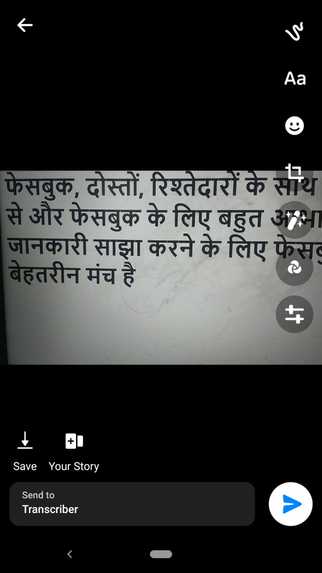 Aa
फेसबुक, दोस्तों, रिश्तेदारों के साथ
से और फेसबुक के लिए बहुत
जानकारी साझा करने के लिए
बेहतरीन मंच है
Save
Your Story
Send to
Transcriber